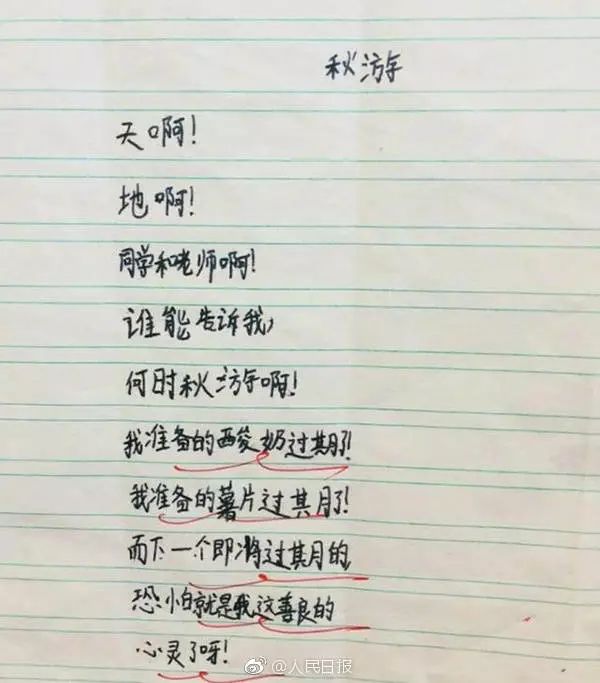 秋游
天啊！
地啊！
同学和老师啊！
谁能告诉我，
何时秋游啊！
我准备的酸奶过期了！
我准备的薯片过期了！
而下一个即将过期的
恐怕就是我这善良的
心灵了呀！
@人民日报